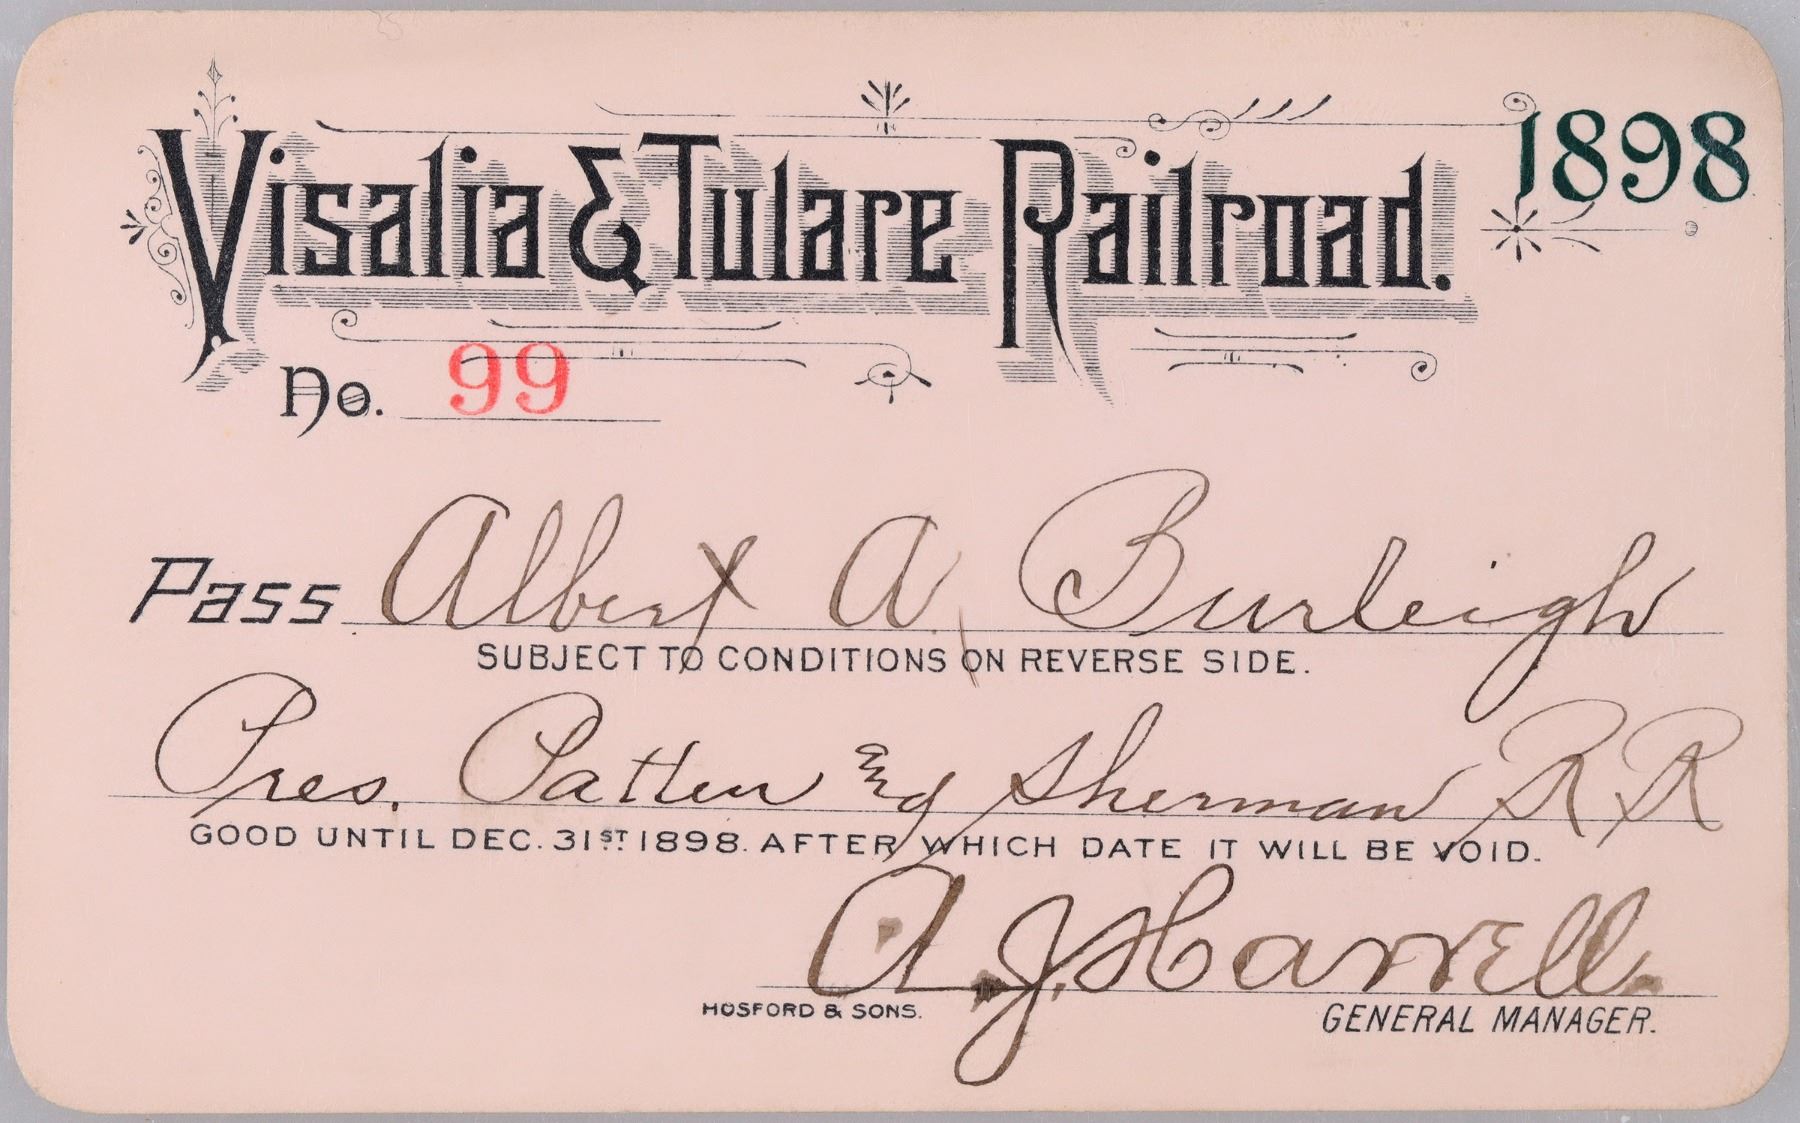 Visalia & Tulare Railroad. 1898
No. 99
Pass Albert A. Burleigh
SUBJECT TO CONDITIONS ON REVERSE SIDE.
Pres. Patten and Sherman R R
GOOD UNTIL DEC. 31ST 1898. AFTER WHICH DATE IT WILL BE VOID.
A. J. Harrell.
HOSFORD & SONS. GENERAL MANAGER.